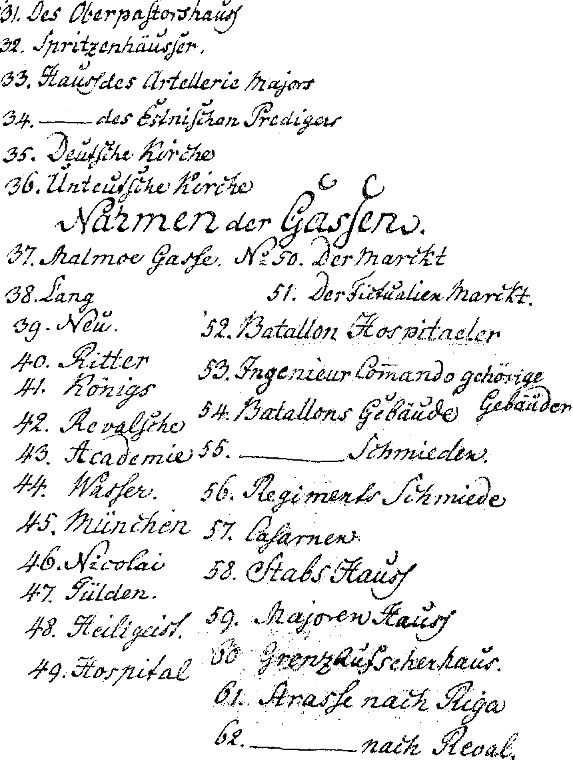 31. Des Oberpastorshauss
32. Spritzenhäusser.
33. Hauss des Artellerie Majors
34. —— des Estnischen Predigers
35. Deutsche Kirche
36. Unteutsche Kirche
Nahmen der Gassen.
37. Malmoe Gasse.
38. Lang
39. Neu.
40. Ritter
41. Königs
42. Revalsche
43. Academie
44. Wasser.
45. München
46. Nicolai
47. Gülden.
48. Heiligeist.
49. Hospital
No 50. Der Marckt
51. Der Fictualien Marckt.
52. Batallon Hospitaeler
53. Ingenieur Com̄ando gehörige Gebäuder
54. Batallons Gebäude
55. —— Schmieden.
56. Regiments Schmiede
57. Casarnen
58. Stabs Hauss
59. Majoren Hauss
60 Grenzaufscherhaus.
61. Strasse nach Riga
62. —— nach Reval.